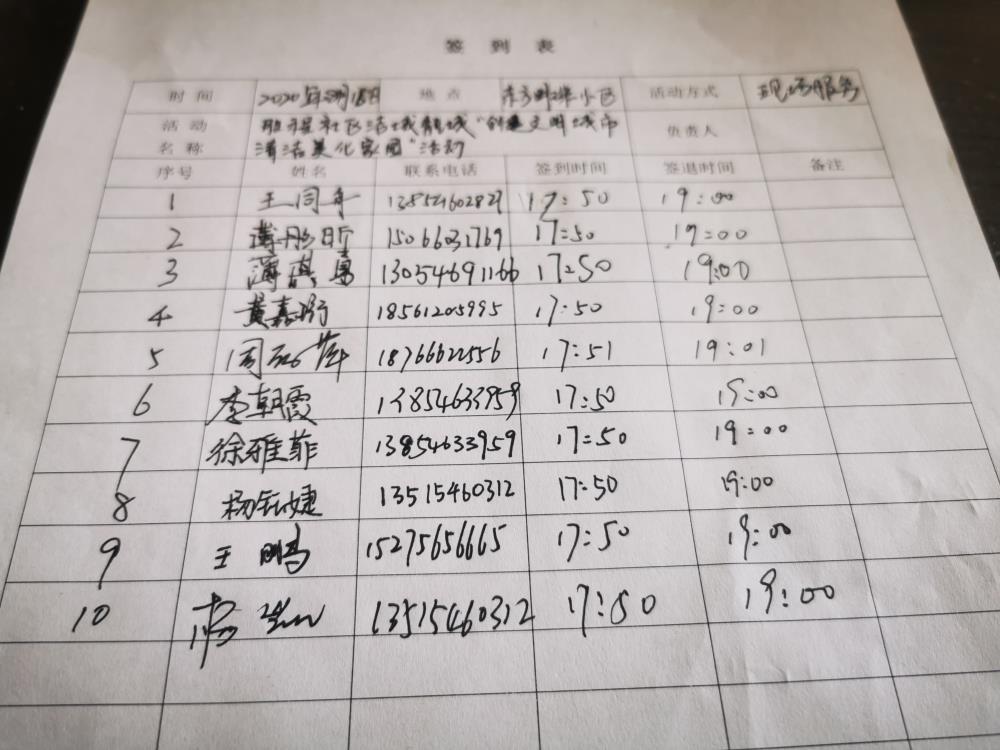 签 到 表
时 间 2020年 月18日 地 点 东方 小区 活动方式 现场服务
活 动 社区 "创建文明城市 负责人
名 称 清洁美化家园"活动
序号 姓名 联系电话 签到时间 签退时间 备注
1 王同 17:50 19:00
2 薄彤昕 15066031769 17:50 19:00
3 薄其勇 13054691166 17:50 19:00
4 黄嘉 18561205995 17:50 19:00
5 周 萍 18766622556 17:51 19:01
6 李朝霞 13854633959 17:50 19:00
7 徐雅菲 13854633959 17:50 19:00
8 杨 婕 13515460312 17:50 19:00
9 王鹏 15275656665 17:50 19:00
10 杨 13515460312 17:50 19:00